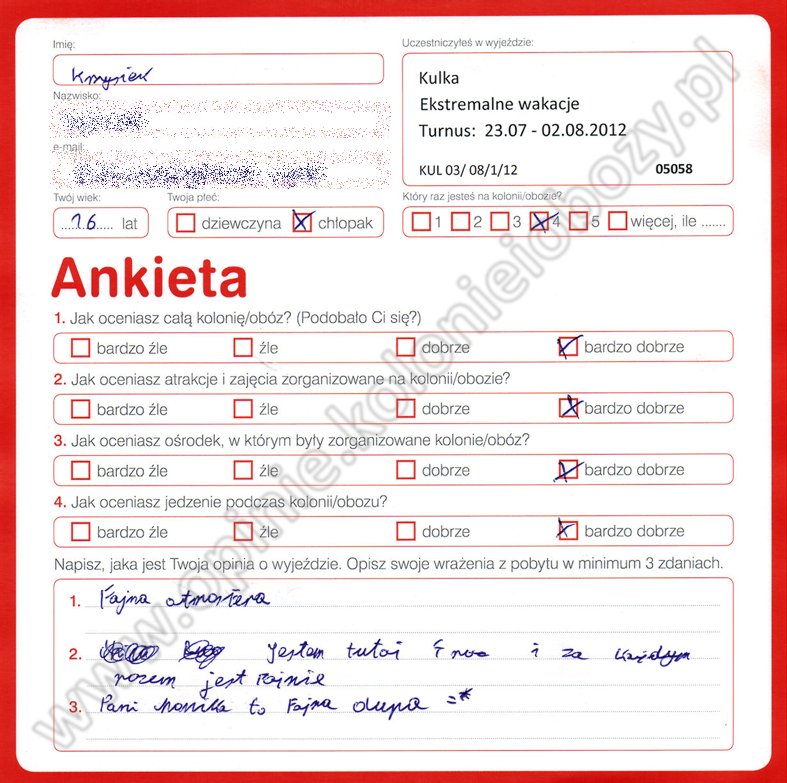 Imię:
Uczestniczyłeś w wyjeździe:
Krzysiek
Kulka
Ekstremalne wakacje
Turnus: 23.07 - 02.08.2012
KUL 03/ 08/1/12 05058
Nazwisko:
e-mail:
Twój wiek: Twoja płeć: Który raz jesteś na kolonii/obozie?
16 lat dziewczyna chłopak 1 2 3 4 5 więcej, ile .......
Ankieta
1. Jak oceniasz całą kolonię/obóz? (Podobało Ci się?)
bardzo źle źle dobrze bardzo dobrze
2. Jak oceniasz atrakcje i zajęcia zorganizowane na kolonii/obozie?
bardzo źle źle dobrze bardzo dobrze
3. Jak oceniasz ośrodek, w którym były zorganizowane kolonie/obóz?
bardzo źle źle dobrze bardzo dobrze
4. Jak oceniasz jedzenie podczas kolonii/obozu?
bardzo źle źle dobrze bardzo dobrze
Napisz, jaka jest Twoja opinia o wyjeździe. Opisz swoje wrażenia z pobytu w minimum 3 zdaniach.
1. Fajna atmosfera
2. Jestem tutaj i za każdym
razem jest fajnie
3. Pani Monika to Fajna dupa =*
www.opinie.kolonieiobozy.pl